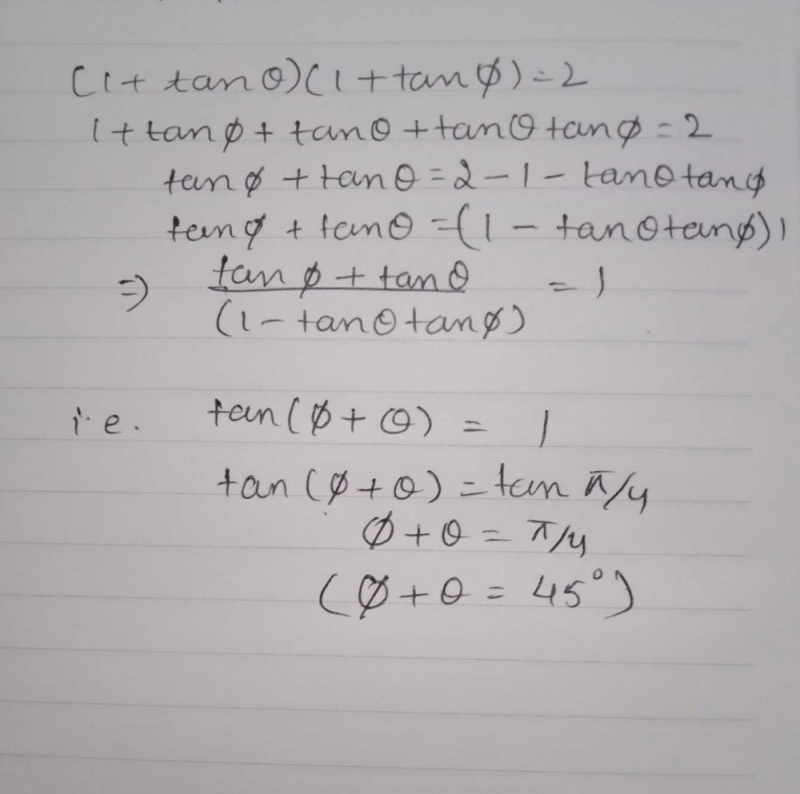 (1 + tan θ)(1 + tan ϕ) = 2
1 + tan ϕ + tan θ + tan θ tan ϕ = 2
tan ϕ + tan θ = 2 - 1 - tan θ tan ϕ
tan ϕ + tan θ = (1 - tan θ tan ϕ) 1
⇒ (tan ϕ + tan θ) / (1 - tan θ tan ϕ) = 1
i.e. tan (ϕ + θ) = 1
tan (ϕ + θ) = tan π/4
ϕ + θ = π/4
(ϕ + θ = 45°)